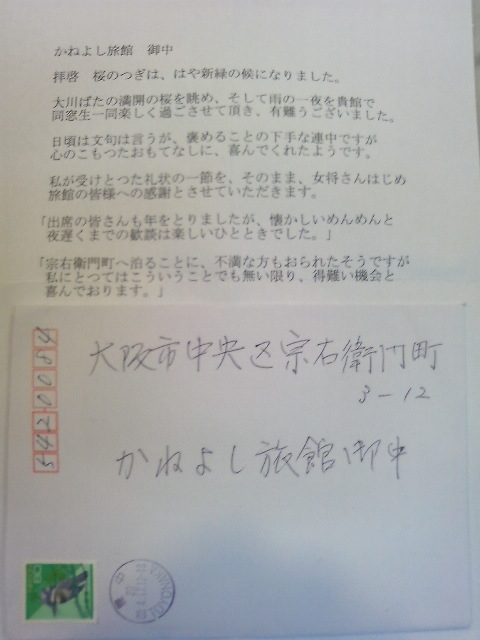 かねよし旅館　御中
拝啓　桜のつぎは、はや新緑の候になりました。
大川ばたの満開の桜を眺め、そして雨の一夜を貴館で
同窓生一同楽しく過ごさせて頂き、有難うございました。
日頃は文句は言うが、褒めることの下手な連中ですが
心のこもつたおもてなしに、喜んでくれたようです。
私が受けとつた礼状の一節を、そのまま、女将さんはじめ
旅館の皆様への感謝とさせていただきます。
「出席の皆さんも年をとりましたが、懐かしいめんめんと
夜遅くまでの歓談は楽しいひとときでした。」
「宗右衛門町へ泊ることに、不満な方もおられたそうですが
私にとつてはこういうことでも無い限り、得難い機会と
喜んでおります。」
5420084
大阪市中央区宗右衛門町
3-12
かねよし旅館御中